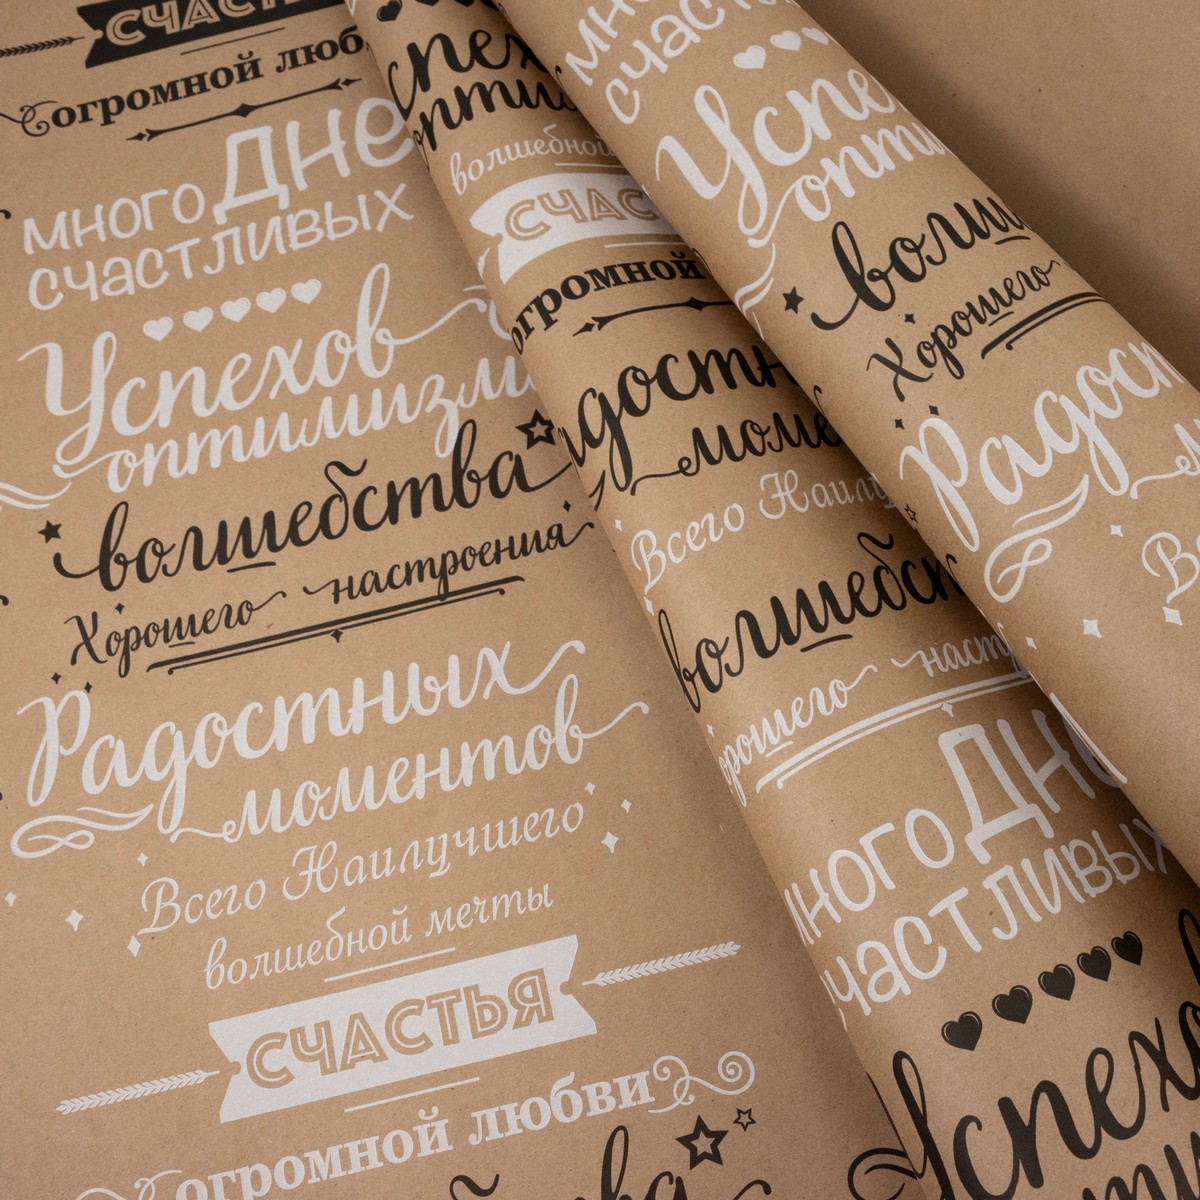 СЧАСТ
огромной люб
много ДНЕ
счастливых
Успехов
оптимизма
волшебства
Хорошего настроения
Радостных
моментов
Всего Наилучшего
волшебной мечты
СЧАСТЬЯ
огромной любви
волшебства
спех
опти
волшебной
СЧАС
огромной
адостн
моме
Всего Наилу
волшебст
орошего наст
много ДНЕ
счастливых
Успехо
опти
много
счаст
Успе
опти
волш
Хорошего
Радост
Вс